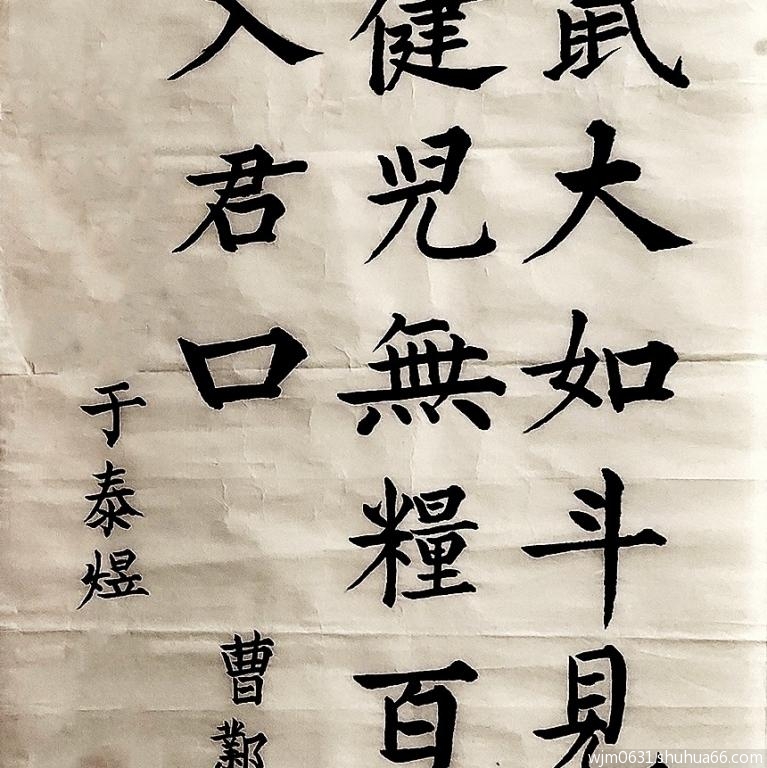 鼠大如斗見
健兒無糧百
入君口
曹鄴
于泰煜
wjm0631.shuhua66.com